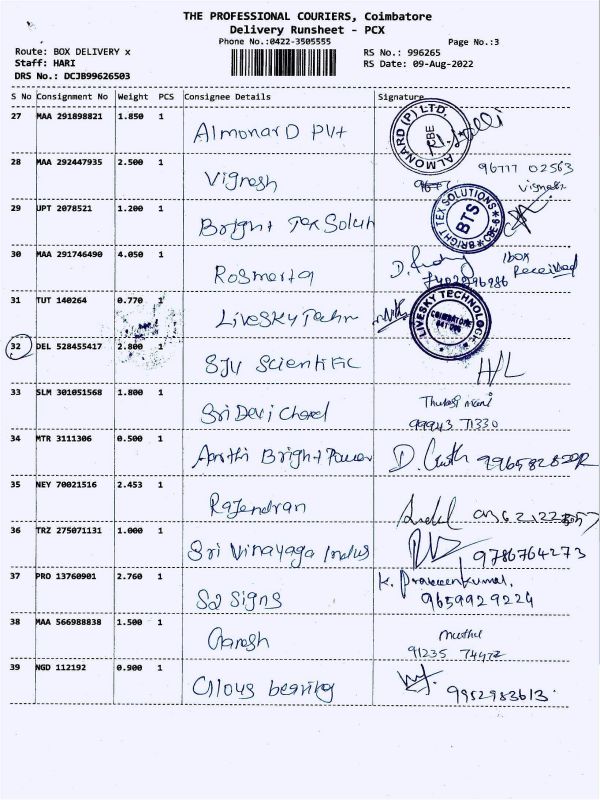 THE PROFESSIONAL COURIERS, Coimbatore
Delivery Runsheet - PCX
Phone No.:0422-3505555 Page No.:3
Route: BOX DELIVERY x RS No.: 996265
Staff: HARI RS Date: 09-Aug-2022
DRS No.: DCJB99626503
S No Consignment No Weight PCS Consignee Details Signature
27 MAA 291898821 1.850 1 Almonard Pvt
ALMONARD (P) LTD. CBE
28 MAA 292447935 2.500 1 Vignesh 96777 02563
Vignesh
29 UPT 2078521 1.200 1 Bright Tex Soluti
BRIGHT TEX SOLUTIONS BTS CBE-6
30 MAA 291746490 4.050 1 Rosmerta 1 box
Received
31 TUT 140264 0.770 1 LiveSky Techn
LIVESKY TECHNOLOGIE COIMBATORE
32 DEL 528455417 2.800 1 SJU Scientific H/L
33 SLM 301051568 1.800 1 Sri Devi Thulasi mani
99943 71330
34 MTR 3111306 0.500 1 Bright Power
35 NEY 70021516 2.453 1 Rajendran
36 TRZ 275071131 1.000 1 Sri Vinayaga Indus 9786764273
37 PRO 13760901 2.760 1 Sa Signs K. Praveenkumar.
9659929224
38 MAA 566988838 1.500 1 Ganesh Muthu
91235
39 NGD 112192 0.900 1 bearing 9952983613